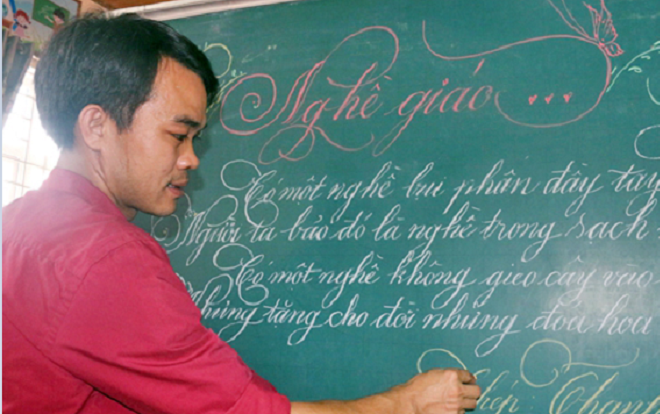 Nghề giáo ...
Có một nghề bụi phấn đầy tay
Người ta bảo đó là nghề trong sạch
Có một nghề không gieo cây vào
Nhưng tặng cho đời những đóa hoa